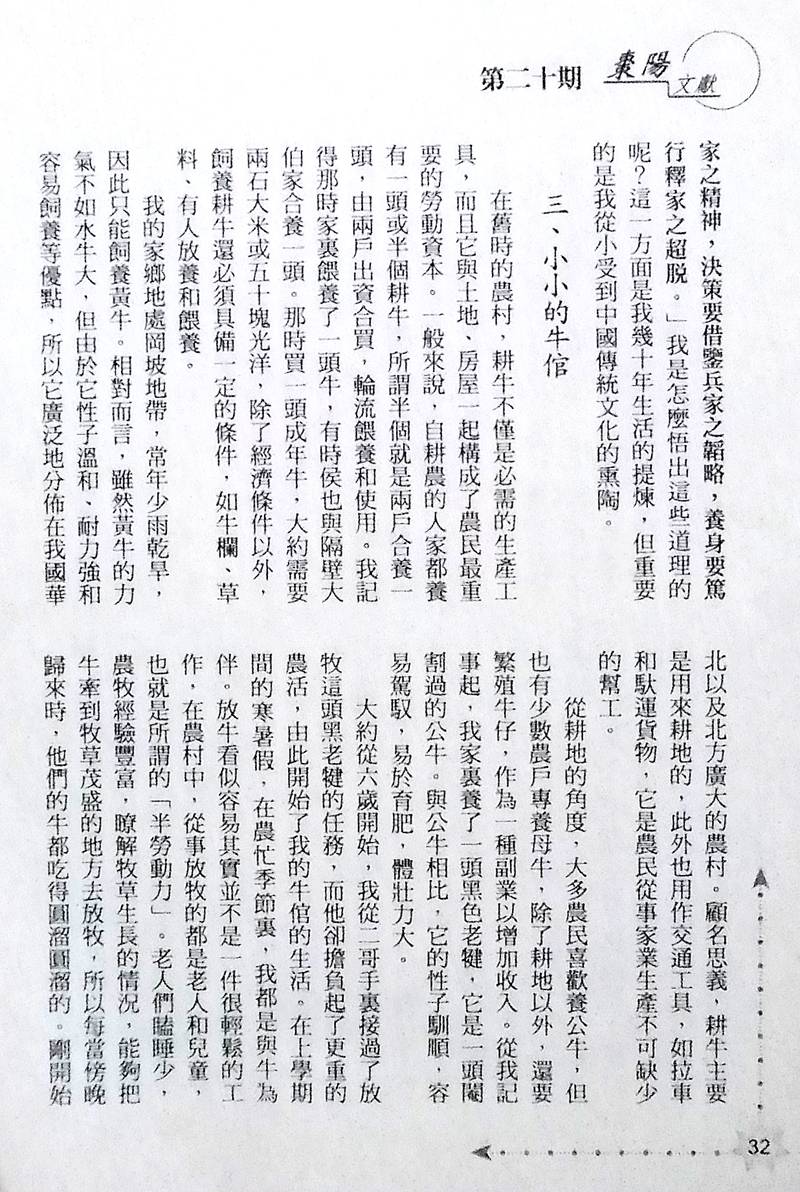 棗陽
文獻
第二十期
家之精神，決策要借鑒兵家之韜略，養身要篤
行釋家之超脱。」我是怎麼悟出這些道理的
呢？這一方面是我幾十年生活的提煉，但重要
的是我從小受到中國傳統文化的熏陶。
三、小小的牛倌
在舊時的農村，耕牛不僅是必需的生產工
具，而且它與土地、房屋一起構成了農民最重
要的勞動資本。一般來說，自耕農的人家都養
有一頭或半個耕牛，所謂半個就是兩戶合養一
頭，由兩戶出資合買，輪流餵養和使用。我記
得那時家裏餵養了一頭牛，有時侯也與隔壁大
伯家合養一頭。那時買一頭成年牛，大約需要
兩石大米或五十塊光洋，除了經濟條件以外，
飼養耕牛還必須具備一定的條件，如牛欄、草
料、有人放養和餵養。
我的家鄉地處岡坡地帶，常年少雨乾旱，
因此只能飼養黃牛。相對而言，雖然黃牛的力
氣不如水牛大，但由於它性子溫和、耐力強和
容易飼養等優點，所以它廣泛地分佈在我國華
北以及北方廣大的農村。顧名思義，耕牛主要
是用來耕地的，此外也用作交通工具，如拉車
和馱運貨物，它是農民從事家業生產不可缺少
的幫工。
從耕地的角度，大多農民喜歡養公牛，但
也有少數農戶專養母牛，除了耕地以外，還要
繁殖牛仔，作為一種副業以增加收入。從我記
事起，我家裏養了一頭黑色老犍，它是一頭閹
割過的公牛。與公牛相比，它的性子馴順，容
易駕馭，易於育肥，體壯力大。
大約從六歲開始，我從二哥手裏接過了放
牧這頭黑老犍的任務，而他卻擔負起了更重的
農活，由此開始了我的牛倌的生活。在上學期
間的寒暑假，在農忙季節裏，我都是與牛為
伴。放牛看似容易其實並不是一件很輕鬆的工
作，在農村中，從事放牧的都是老人和兒童，
也就是所謂的「半勞動力」。老人們瞌睡少，
農牧經驗豐富，瞭解牧草生長的情況，能夠把
牛牽到牧草茂盛的地方去放牧，所以每當傍晚
歸來時，他們的牛都吃得圓溜圓溜的。剛開始
32